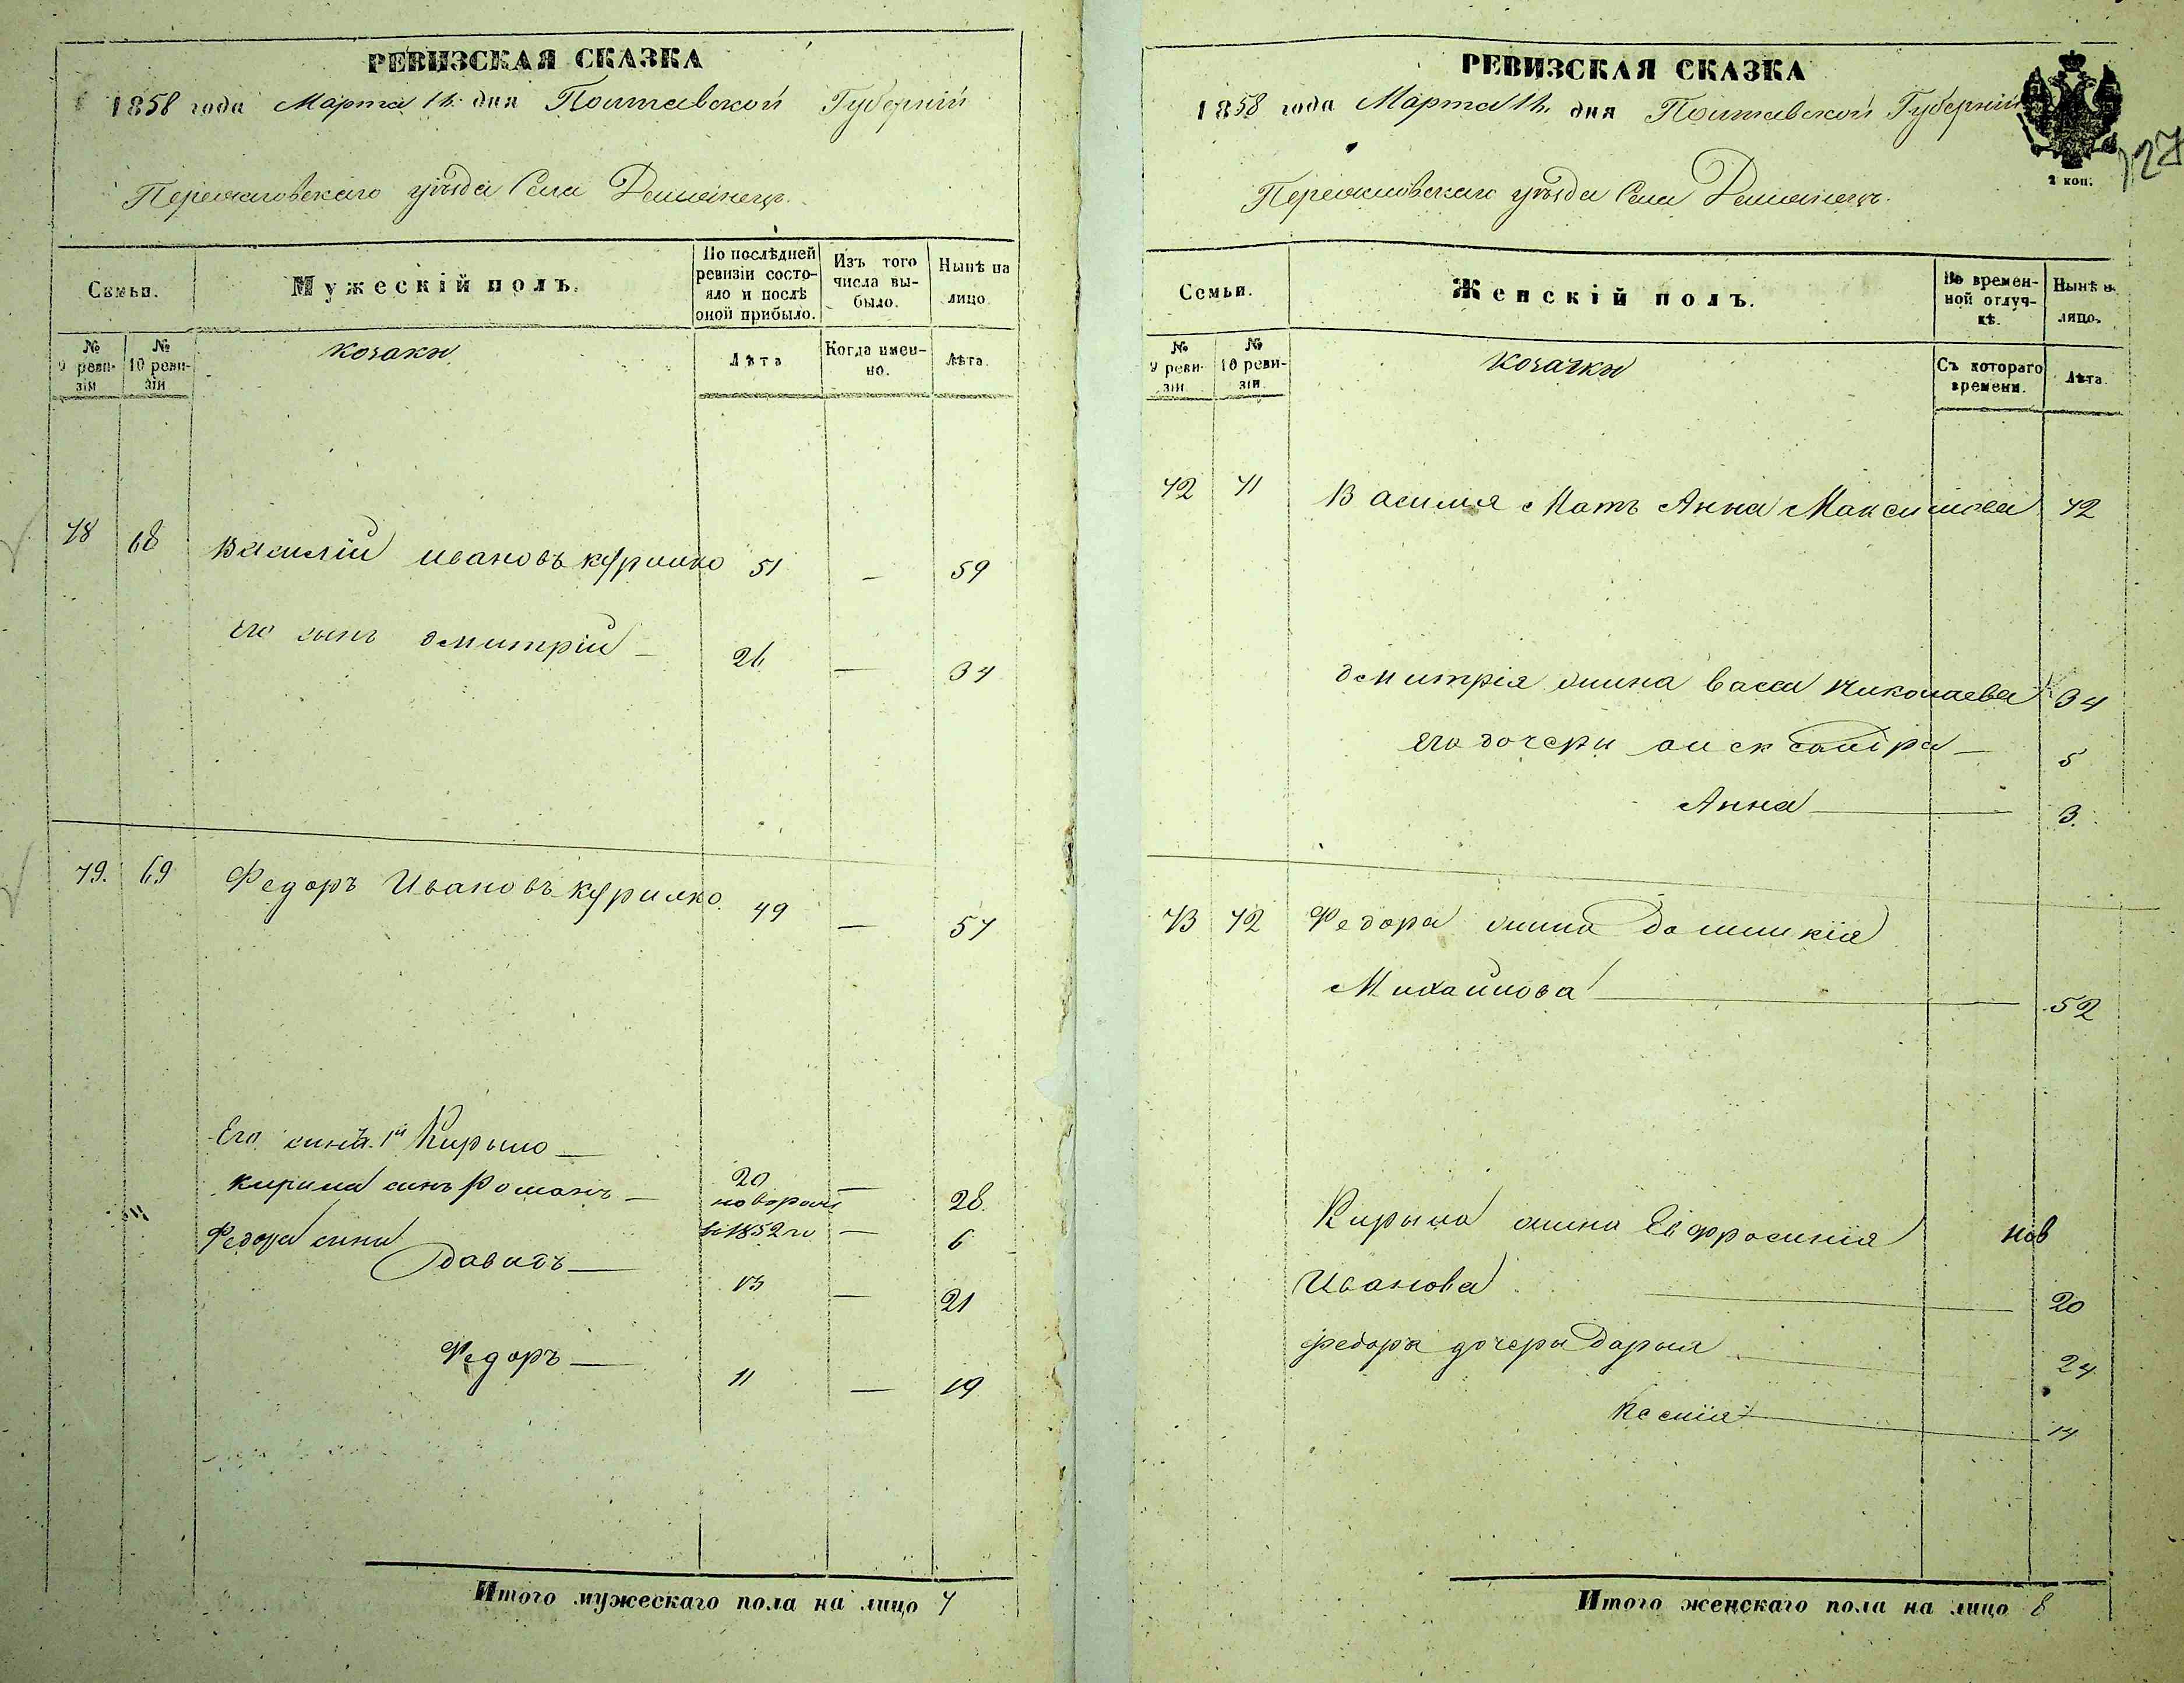 РЕВИЗСКАЯ СКАЗКА
1858 года Марта 16 дня Полтавской Губерніи
Переяславскаго уѣзда Села Демьянецъ.
Семьи.
Мужескій полъ.
По послѣдней ревизіи состояло и послѣ оной прибыло.
Изъ того числа выбыло.
Нынѣ на лицо.
№ 9 ревизіи
№ 10 ревизіи
козаки
Лѣта
Когда именно.
Лѣта.
78 68 Василій ивановъ курилко 51 — 59
его сынъ дмитрій — 26 — 34
79. 69 Федоръ Ивановъ курилко 49 — 57
Его сынъ. 1й Кирыло — 20 — 28.
кирила синъ Романъ — новорож
в 1852 го — 6
Федора сини
давидъ — 13 — 21
Федоръ — 11 — 19
Итого мужескаго пола на лицо 7
РЕВИЗСКАЯ СКАЗКА
1858 года Марта 16. дня Полтавской Губерніи
2 коп.
127
Переяславскаго уѣзда Села Демьянецъ.
Семьи.
Женскій полъ.
Во временной отлучкѣ.
Нынѣ на лицо.
№ 9 ревизіи
№ 10 ревизіи
козачки
Съ котораго времени.
Лѣта.
72 71 Василія Мать Анна Максимова 72
дмитрія жина васса николаева 34
его дочери александра — 5
Анна — 3.
73 72 Федора жина домникія
Михайлова — 52
Кирыла жина Евфросинія нов
Иванова — 20
федора дочеры дарыя — 24
Ксенія — 14
Итого женскаго пола на лицо 8